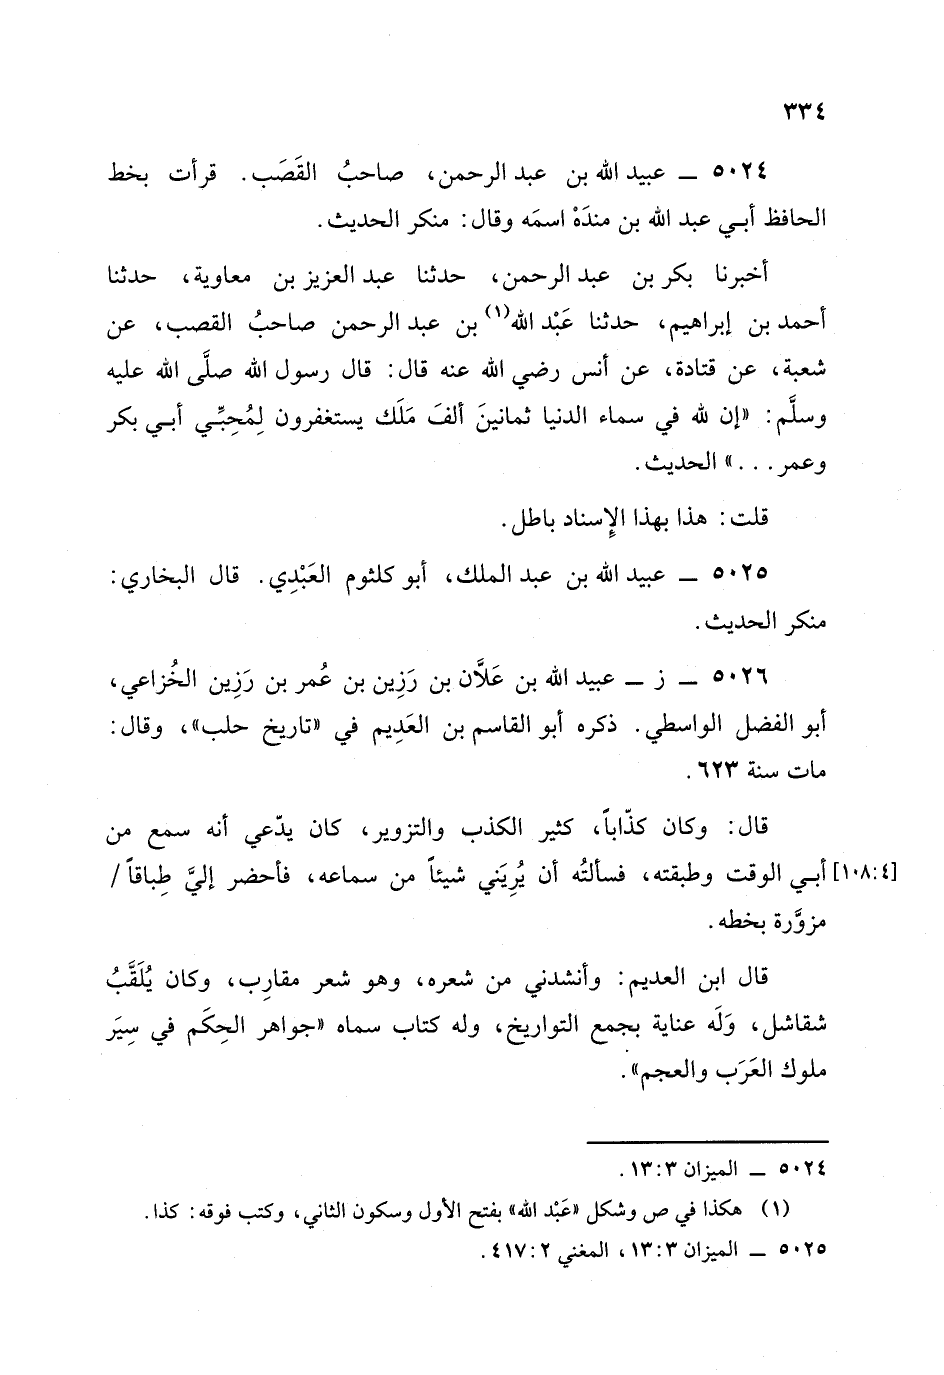 ٣٣٤
٥٠٢٤ ــ عبيد الله بن عبد الرحمن، صاحبُ القَصَب. قرأت بخط
الحافظ أبي عبد الله بن مندَهْ اسمَه وقال: منكر الحديث.
أخبرنا بكر بن عبد الرحمن، حدثنا عبد العزيز بن معاوية، حدثنا
أحمد بن إبراهيم، حدثنا عَبْد الله(١) بن عبد الرحمن صاحبُ القصب، عن
شعبة، عن قتادة، عن أنس رضي الله عنه قال: قال رسول الله صلَّى الله عليه
وسلَّم: «إن لله في سماء الدنيا ثمانينَ ألفَ مَلَك يستغفرون لِمُحِبِّي أبي بكر
وعمر...» الحديث.
قلت: هذا بهذا الإِسناد باطل.
٥٠٢٥ ــ عبيد الله بن عبد الملك، أبو كلثوم العَبْدِي. قال البخاري:
منكر الحديث.
٥٠٢٦ ــ ز ــ عبيد الله بن عَلَّان بن رَزِين بن عُمر بن رَزِين الخُزاعي،
أبو الفضل الواسطي. ذكره أبو القاسم بن العَدِيم في «تاريخ حلب»، وقال:
مات سنة ٦٢٣.
قال: وكان كذّاباً، كثير الكذب والتزوير، كان يدّعي أنه سمع من
[٤:١٠٨] أبي الوقت وطبقته، فسألتُه أن يُرِيَني شيئاً من سماعه، فأحضر إليَّ طِباقاً/
مزوَّرة بخطه.
قال ابن العديم: وأنشدني من شعره، وهو شعر مقارِب، وكان يُلَقَّبُ
شقاشل، وَلَه عناية بجمع التواريخ، وله كتاب سماه «جواهر الحِكَم في سِيَر
ملوك العَرَب والعجم».
٥٠٢٤ ــ الميزان ٣:١٣.
(١) هكذا في ص وشكل «عَبْد الله» بفتح الأول وسكون الثاني، وكتب فوقه: كذا.
٥٠٢٥ ــ الميزان ٣:١٣، المغني ٢:٤١٧.